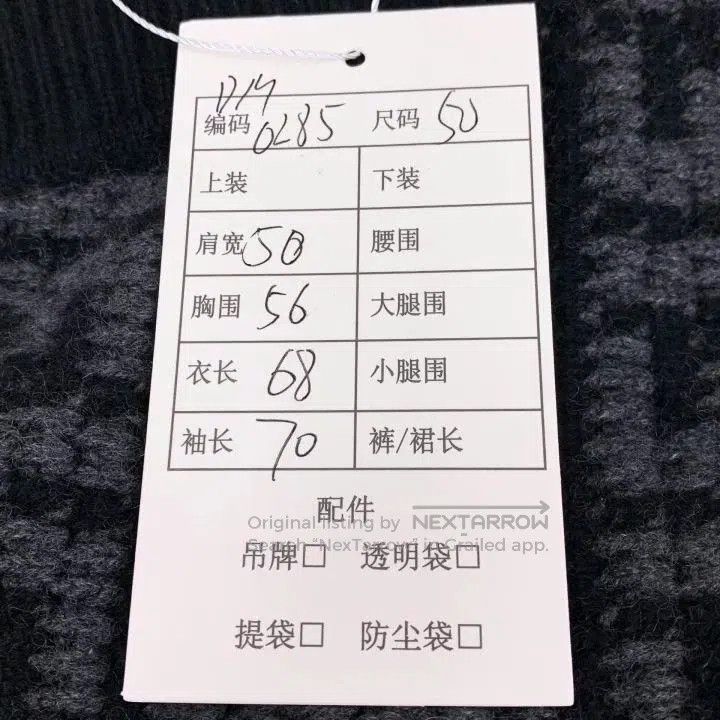 编码 0285 尺码 50
上装 下装
肩宽 50 腰围
胸围 56 大腿围
衣长 68 小腿围
袖长 70 裤/裙长
配件
Original listing by NEXTARROW
Search "NexTarrow" in Grailed app.
吊牌□ 透明袋□
提袋□ 防尘袋□